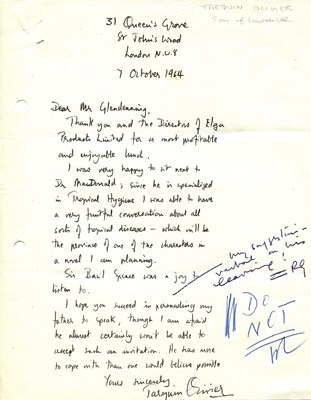 TARQUIN OLIVIER
Son of Lawrence
31 Queen's Grove
St John's Wood
London N.W.8
7 October 1964
Dear Mr Glendenning,
Thank you and the Directors of Elga
Products Limited for a most profitable
and enjoyable lunch.
I was very happy to sit next to
Dr MacDonald; since he is specialised
in Tropical Hygiene I was able to have
a very fruitful conversation about all
sorts of tropical diseases – which will be
the province of one of the characters in
a novel I am planning.
Sir Basil Spence was a joy to
listen to.
I hope you succeed in persuading my
father to speak, though I am afraid
he almost certainly won't be able to
accept such an invitation. He has more
to cope with than one would believe possible
Yours sincerely,
Tarquin Olivier
my suggestion –
on his
leaving!
RG
DO
NOT